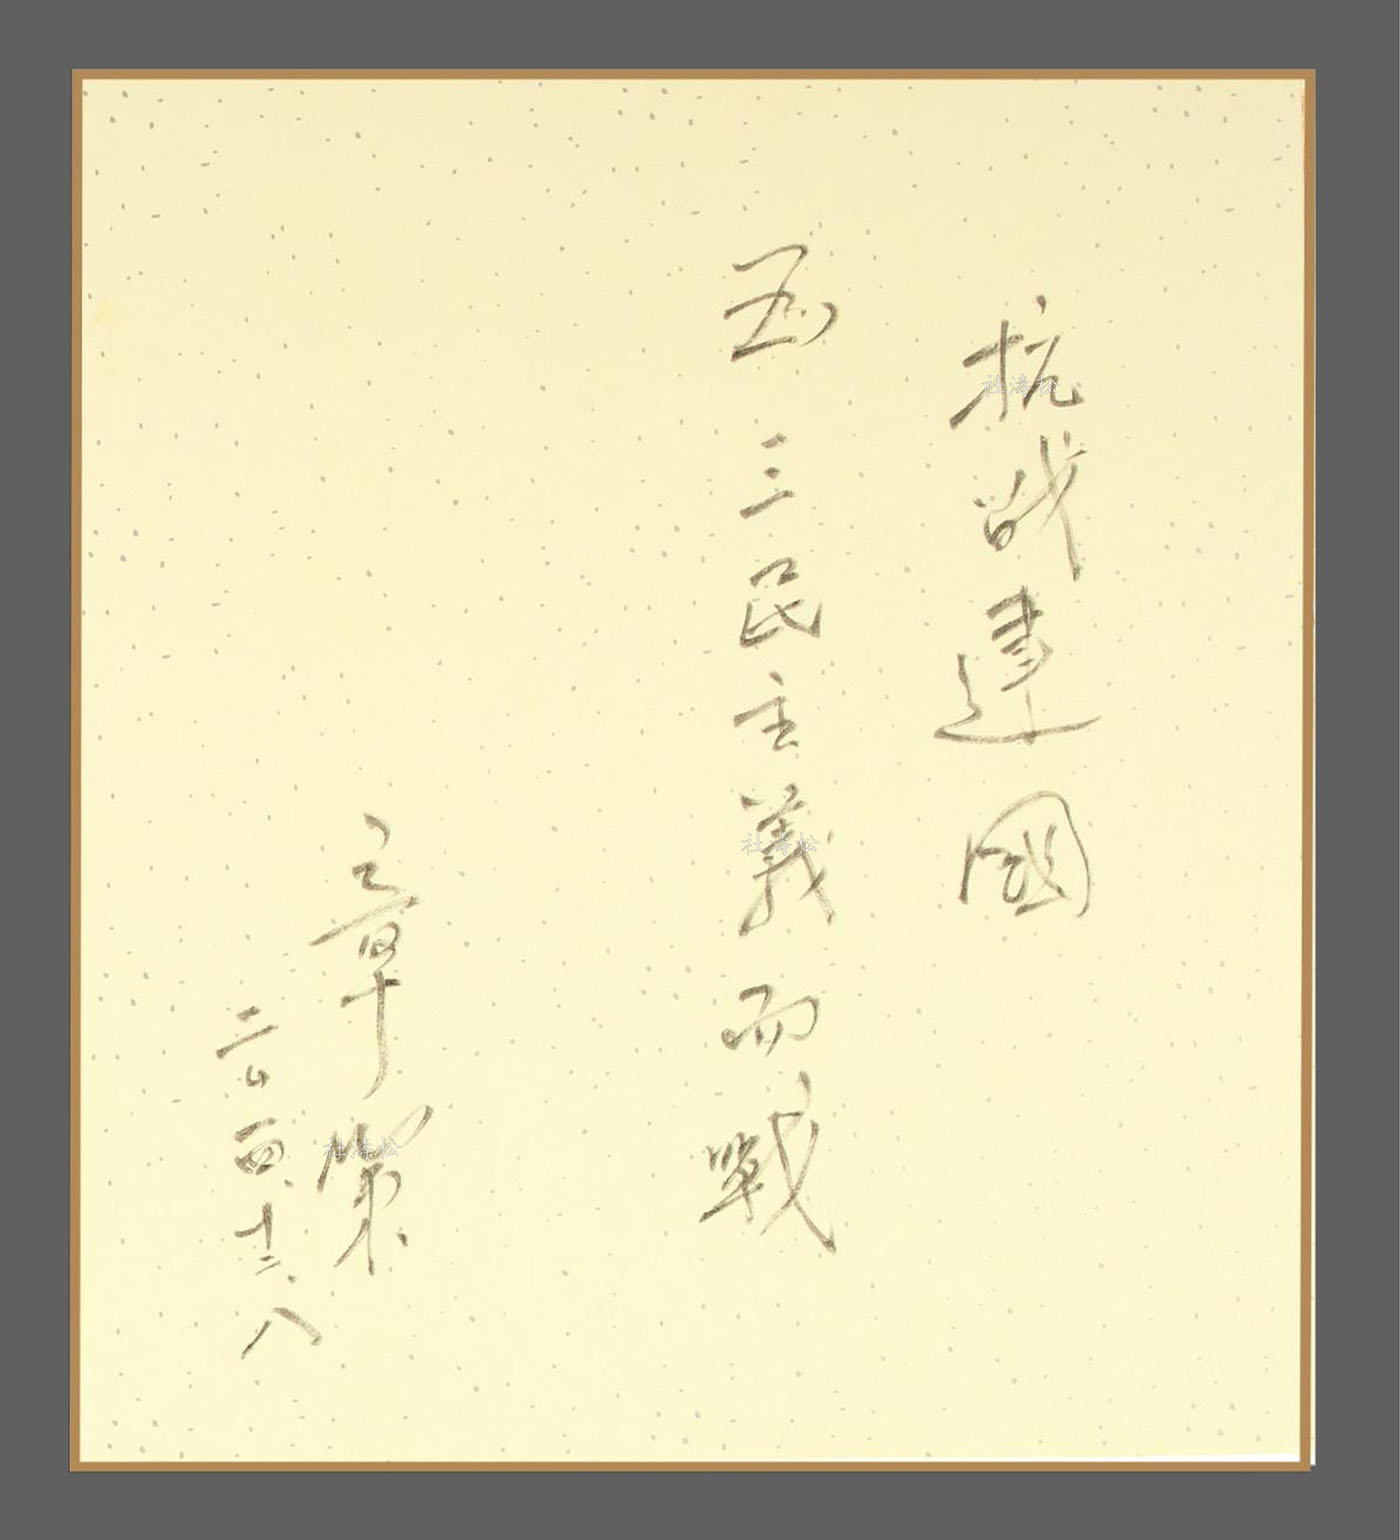 抗战建國
為三民主義而戰
章榘
二〇一四、十二、八
杜海松
杜海松
杜海松